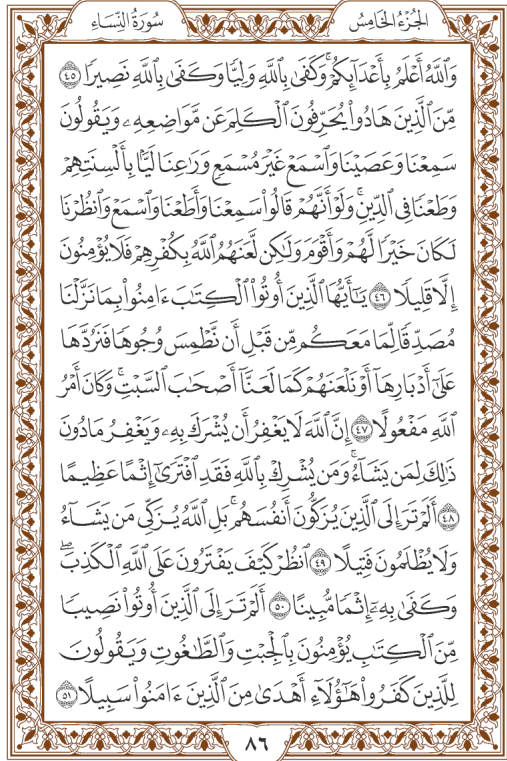 الجُزْءُ الخَامِسُ
سُورَةُ النِّسَاءِ
وَٱللَّهُ أَعْلَمُ بِأَعْدَآئِكُمْۚ وَكَفَىٰ بِٱللَّهِ وَلِيًّا وَكَفَىٰ بِٱللَّهِ نَصِيرًا ٤٥
مِّنَ ٱلَّذِينَ هَادُواْ يُحَرِّفُونَ ٱلْكَلِمَ عَن مَّوَاضِعِهِۦ وَيَقُولُونَ
سَمِعْنَا وَعَصَيْنَا وَٱسْمَعْ غَيْرَ مُسْمَعٍ وَرَٰعِنَا لَيًّۢا بِأَلْسِنَتِهِمْ
وَطَعْنًا فِى ٱلدِّينِۚ وَلَوْ أَنَّهُمْ قَالُواْ سَمِعْنَا وَأَطَعْنَا وَٱسْمَعْ وَٱنظُرْنَا
لَكَانَ خَيْرًا لَّهُمْ وَأَقْوَمَ وَلَٰكِن لَّعَنَهُمُ ٱللَّهُ بِكُفْرِهِمْ فَلَا يُؤْمِنُونَ
إِلَّا قَلِيلًا ٤٦ يَٰٓأَيُّهَا ٱلَّذِينَ أُوتُواْ ٱلْكِتَٰبَ ءَامِنُواْ بِمَا نَزَّلْنَا
مُصَدِّقًا لِّمَا مَعَكُم مِّن قَبْلِ أَن نَّطْمِسَ وُجُوهًا فَنَرُدَّهَا
عَلَىٰٓ أَدْبَارِهَآ أَوْ نَلْعَنَهُمْ كَمَا لَعَنَّآ أَصْحَٰبَ ٱلسَّبْتِۚ وَكَانَ أَمْرُ
ٱللَّهِ مَفْعُولًا ٤٧ إِنَّ ٱللَّهَ لَا يَغْفِرُ أَن يُشْرَكَ بِهِۦ وَيَغْفِرُ مَا دُونَ
ذَٰلِكَ لِمَن يَشَآءُۚ وَمَن يُشْرِكْ بِٱللَّهِ فَقَدِ ٱفْتَرَىٰٓ إِثْمًا عَظِيمًا
٤٨ أَلَمْ تَرَ إِلَى ٱلَّذِينَ يُزَكُّونَ أَنفُسَهُمۚ بَلِ ٱللَّهُ يُزَكِّى مَن يَشَآءُ
وَلَا يُظْلَمُونَ فَتِيلًا ٤٩ ٱنظُرْ كَيْفَ يَفْتَرُونَ عَلَى ٱللَّهِ ٱلْكَذِبَۖ
وَكَفَىٰ بِهِۦٓ إِثْمًا مُّبِينًا ٥٠ أَلَمْ تَرَ إِلَى ٱلَّذِينَ أُوتُواْ نَصِيبًا
مِّنَ ٱلْكِتَٰبِ يُؤْمِنُونَ بِٱلْجِبْتِ وَٱلطَّٰغُوتِ وَيَقُولُونَ
لِلَّذِينَ كَفَرُواْ هَٰٓؤُلَآءِ أَهْدَىٰ مِنَ ٱلَّذِينَ ءَامَنُواْ سَبِيلًا ٥١
٨٦